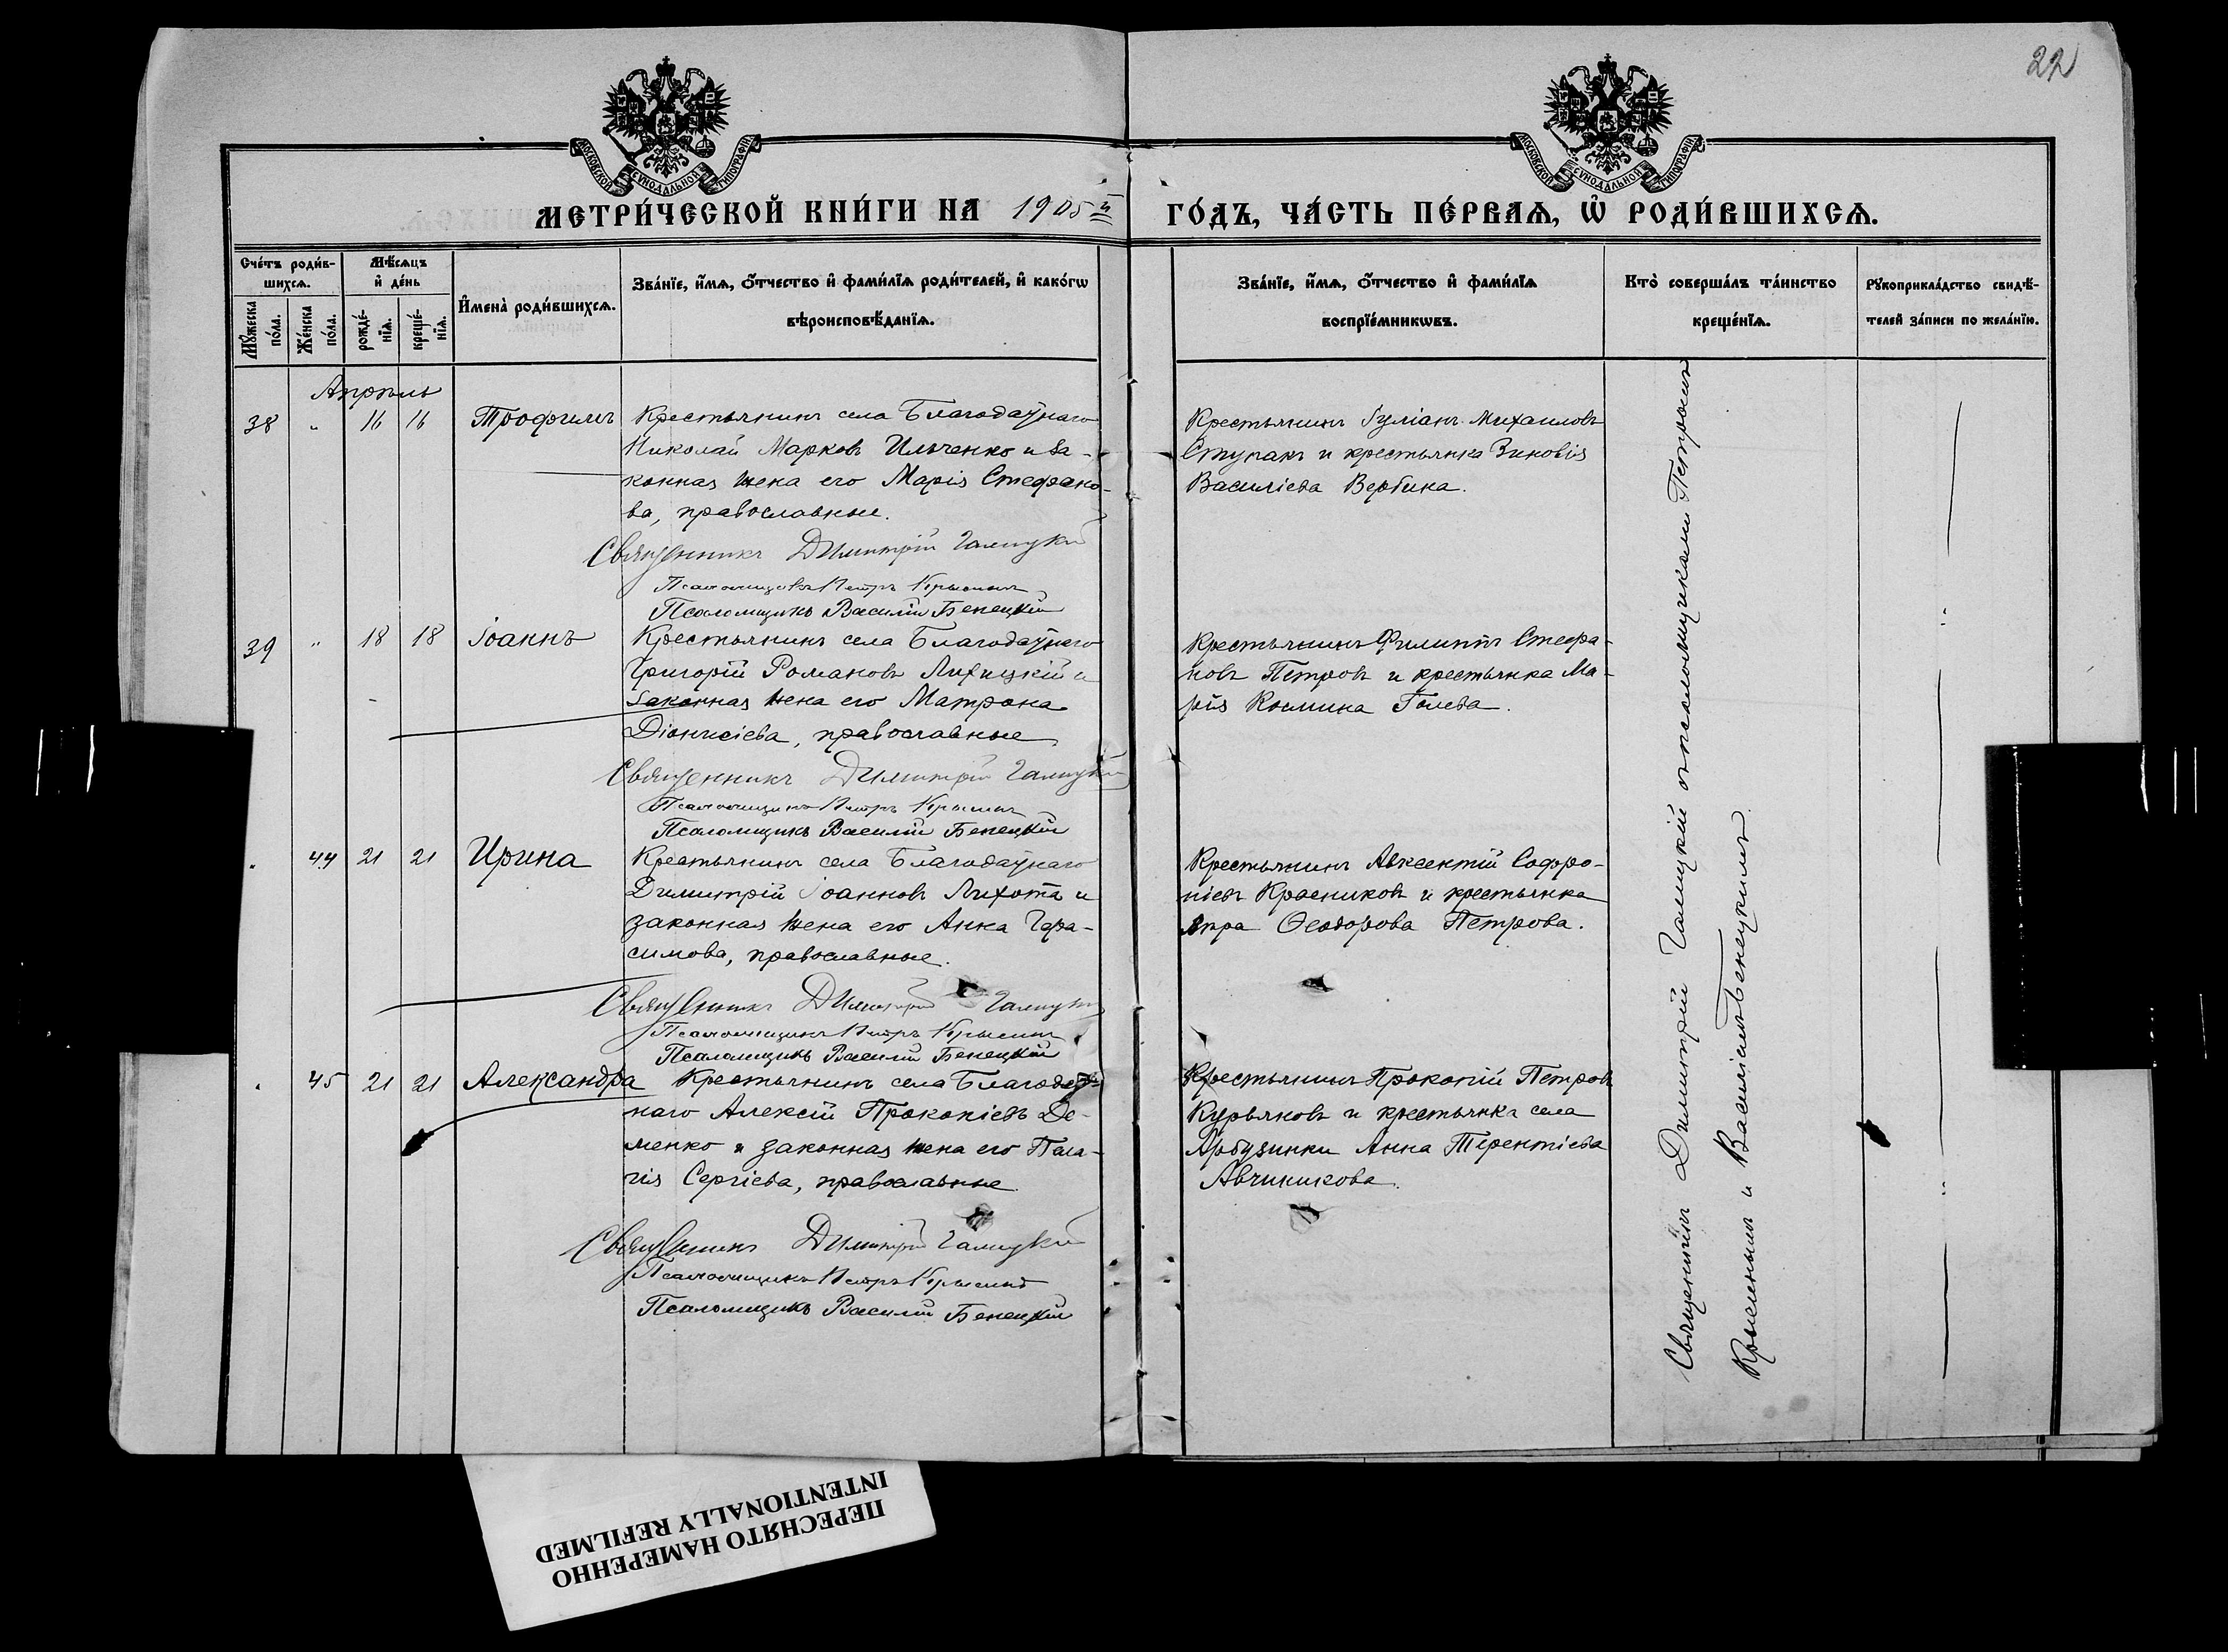 22
МОСКОВСКОЙ СѴНОДАЛЬНОЙ ТИПОГРАФІИ
МОСКОВСКОЙ СѴНОДАЛЬНОЙ ТИПОГРАФІИ
МЕТРИ́ЧЕСКОЙ КНИ́ГИ НА 1905й
ГО́ДЪ, ЧА́СТЬ ПЕ́РВАѦ, Ѡ҆ РОДИ́ВШИХСѦ.
Сче́тъ роди́в-
шихсѧ.
Мꙋ́жеска по́ла.
Же́нска по́ла.
Мѣ́сѧцъ и҆ де́нь
рожде́-нїѧ.
креще́-нїѧ.
И҆мена̀ роди́вшихсѧ.
Зва́нїе, и҆́мѧ, ѻ҆́тчество и҆ фами́лїѧ роди́телей, и҆ како́гѡ
вѣроисповѣ́данїѧ.
Зва́нїе, и҆́мѧ, ѻ҆́тчество и҆ фами́лїѧ
воспрїе́мникѡвъ.
Кто̀ соверша́лъ та́инство
креще́нїѧ.
Рꙋкоприкла́дство свидѣ́-
телей за́писи по жела́нїю.
Апрѣль
38 " 16 16 Трофимъ Крестьянинъ села Благодатнаго
Николай Марковъ Ильченко и за-
конная жена его Марія Стефано-
ва, православные.
Священникъ Димитрій Галицкій
Псаломщикъ Петръ Крысинъ
Псаломщикъ Василій Бенецкій
Крестьянинъ Іуліанъ Михаиловъ
Ступакъ и крестьянка Зиновія
Василіева Вербина.
39 " 18 18 Іоаннъ Крестьянинъ села Благодатнаго
Григорій Романовъ Лихицкій и
законная жена его Матрона
Діонисіева, православные
Священникъ Димитрій Галицкій
Псаломщикъ Петръ Крысинъ
Псаломщикъ Василій Бенецкій
Крестьянинъ Филиппъ Стефа-
новъ Петровъ и крестьянка Ма-
рія Космина Голева.
" 44 21 21 Ирина Крестьянинъ села Благодатнаго
Димитрій Іоанновъ Лихота и
законная жена его Анна Гера-
симова, православные.
Священникъ Димитрій Галицкій
Псаломщикъ Петръ Крысинъ
Псаломщикъ Василій Бенецкій
Крестьянинъ Авксентій Софро-
ніевъ Красниковъ и крестьянка
Ѳеодорова Петрова.
" 45 21 21 Александра Крестьянинъ села Благодат-
наго Алексій Прокопіевъ Де-
менко и законная жена его Пела-
гія Сергіева, православные
Священникъ Димитрій Галицкій
Псаломщикъ Петръ Крысинъ
Псаломщикъ Василій Бенецкій
Крестьянинъ Прокопій Петровъ
Курьяновъ и крестьянка села
Арбузинки Анна Терентіева
Авчиникова.
Священникъ Димитрій Галицкій съ псаломщиками Петромъ
Крысинымъ и Василіемъ Бенецкимъ.
ПЕРЕСНЯТО НАМЕРЕННО
INTENTIONALLY REFILMED